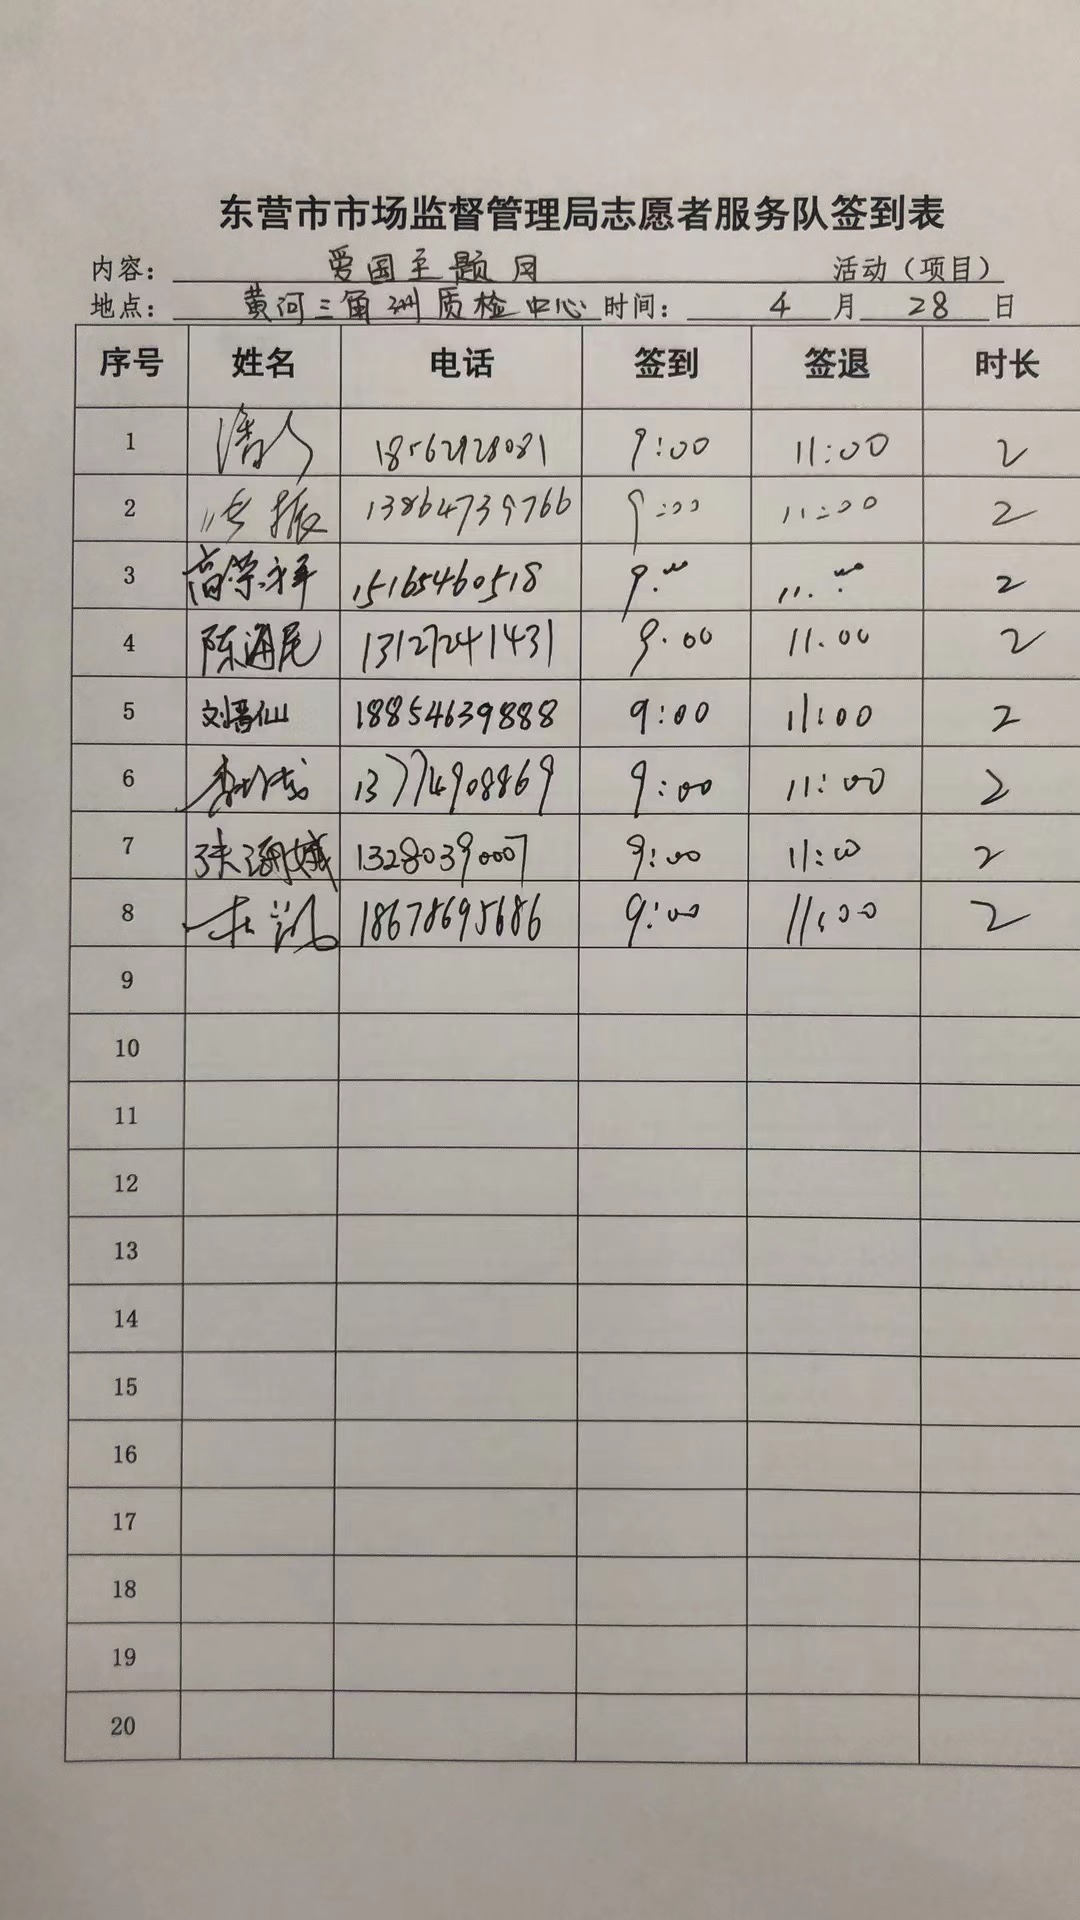 东营市市场监督管理局志愿者服务队签到表
内容： 爱国主题月 活动（项目）
地点： 黄河三角洲质检中心 时间： 4 月 28 日
序号 姓名 电话 签到 签退 时长
1 9:00 11:00 2
2 13864739766 9:00 11:00 2
3 高荣祥 15165460518 9:00 11:00 2
4 13127241431 9.00 11.00 2
5 刘晋仙 18854639888 9:00 11:00 2
6 13774908869 9:00 11:00 2
7 13280390007 9:00 11:00 2
8 18678695686 9:00 11:00 2
9
10
11
12
13
14
15
16
17
18
19
20